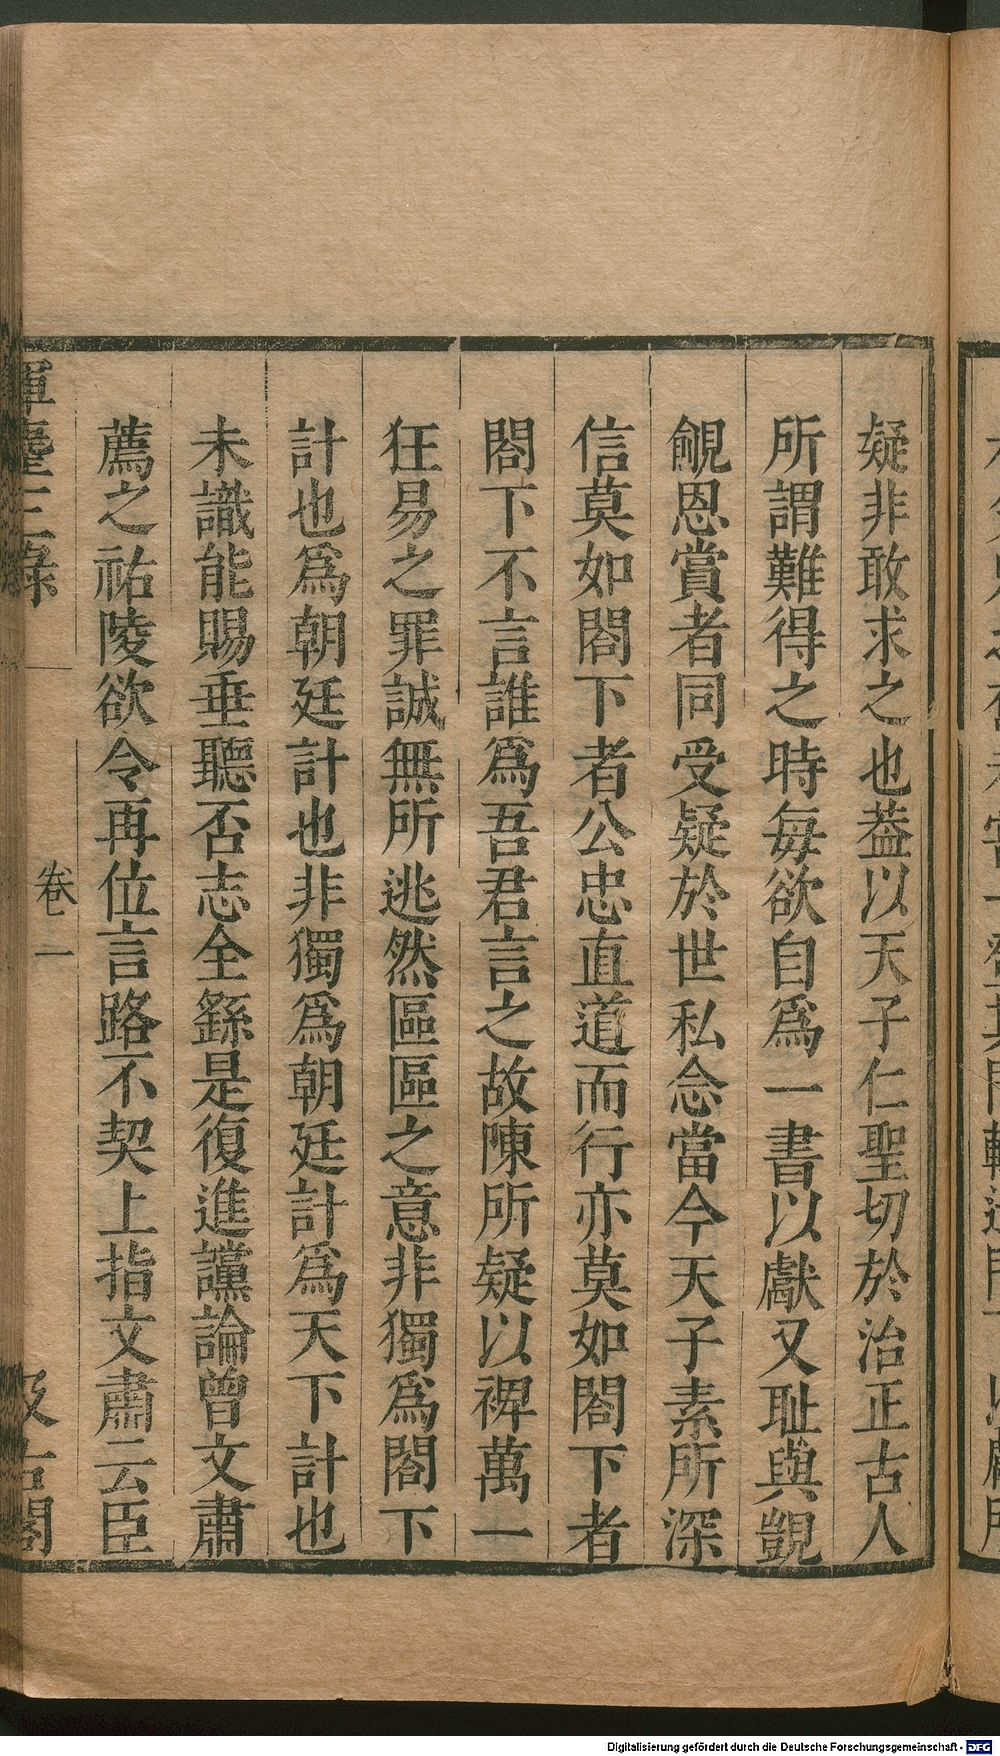 疑非敢求之也葢以天子仁聖切於治正古人
所謂難得之時每欲自爲一書以獻又耻與覬
覦恩賞者同受疑於世私念當今天子素所深
信莫如閤下者公忠直道而行亦莫如閤下者
閤下不言誰爲吾君言之故陳所疑以裨萬一
狂易之罪誠無所逃然區區之意非獨爲閤下
計也爲朝廷計也非獨爲朝廷計爲天下計也
未識能賜垂聽否志全繇是復進讜論曾文肅
薦之祐陵欲令再位言路不契上指文肅云臣
揮麈三錄
卷一
汲古閣
Digitalisierung gefördert durch die Deutsche Forschungsgemeinschaft - DFG